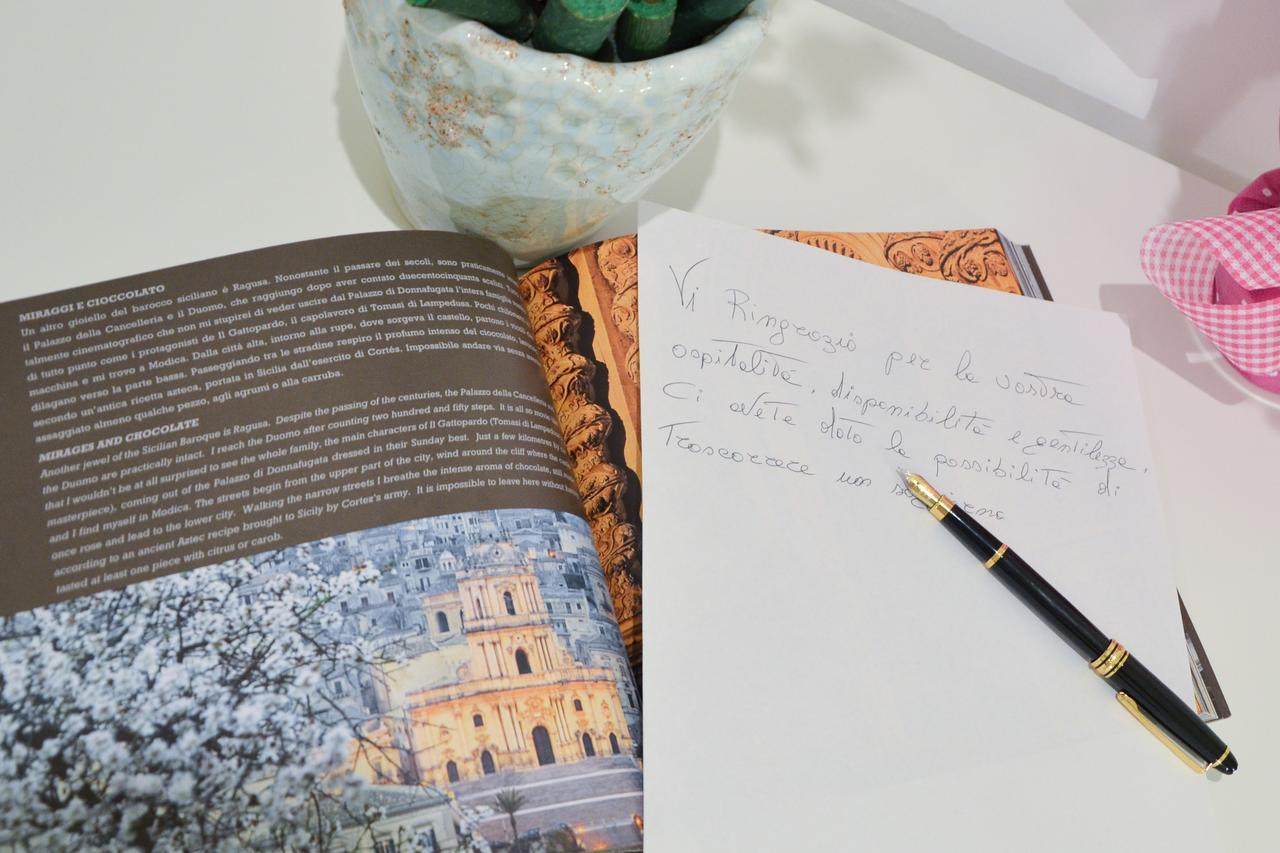 MIRAGGI E CIOCCOLATO
Un altro gioiello del barocco siciliano è Ragusa. Nonostante il passare dei secoli, sono praticamente
il Palazzo della Cancelleria e il Duomo, che raggiungo dopo aver contato duecentocinquanta scalini.
talmente cinematografico che non mi stupirei di veder uscire dal Palazzo di Donnafugata l'intera famiglia
di tutto punto come i protagonisti de Il Gattopardo, il capolavoro di Tomasi di Lampedusa. Pochi chilometri
macchina e mi trovo a Modica. Dalla città alta, intorno alla rupe, dove sorgeva il castello, partono i
dilagano verso la parte bassa. Passeggiando tra le stradine respiro il profumo intenso del cioccolato,
secondo un'antica ricetta azteca, portata in Sicilia dall'esercito di Cortés. Impossibile andare via senza
assaggiato almeno qualche pezzo, agli agrumi o alla carruba.
MIRAGES AND CHOCOLATE
Another jewel of the Sicilian Baroque is Ragusa. Despite the passing of the centuries, the Palazzo della Cancelleria
the Duomo are practically intact. I reach the Duomo after counting two hundred and fifty steps. It is all so
that I wouldn't be at all surprised to see the whole family, the main characters of Il Gattopardo (Tomasi di Lampedusa
masterpiece), coming out of the Palazzo di Donnafugata dressed in their Sunday best. Just a few kilometres
and I find myself in Modica. The streets begin from the upper part of the city, wind around the cliff where the
once rose and lead to the lower city. Walking the narrow streets I breathe the intense aroma of chocolate,
according to an ancient Aztec recipe brought to Sicily by Cortes's army. It is impossible to leave here without
tasted at least one piece with citrus or carob.
Vi Ringrazio per la vostra
ospitalità, disponibilità e gentilezza.
Ci avete dato la possibilità di
Trascorrere una